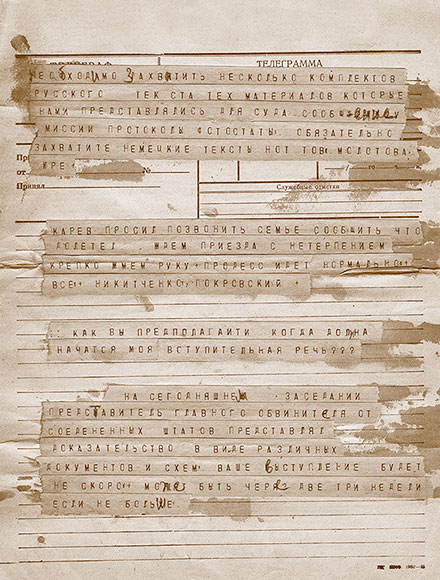 ТЕЛЕГРАФ ТЕЛЕГРАММА
НЕОБХОДИМО ЗАХВАТИТЬ НЕСКОЛЬКО КОМПЛЕКТОВ
РУССКОГО ТЕКСТА ТЕХ МАТЕРИАЛОВ КОТОРЫЕ
НАМИ ПРЕДСТАВЛЯЛИСЬ ДЛЯ СУДА СООБЩЕНИЕ
МИССИИ ПРОТОКОЛЫ ФОТОСТАТЫ ОБЯЗАТЕЛЬНО
ЗАХВАТИТЕ НЕМЕЦКИЕ ТЕКСТЫ НОТ ТОВ МОЛОТОВА.
КРЕ+
от №
Принял
Служебные отметки
КАРЕВ ПРОСИЛ ПОЗВОНИТЬ СЕМЬЕ СООБЩИТЬ ЧТО
ДОЛЕТЕЛ ЖДЕМ ПРИЕЗДА С НЕТЕРПЕНИЕМ
КРЕПКО ЖМЕМ РУКУ+ ПРОЦЕСС ИДЕТ НОРМАЛЬНО++
ВСЕ++ НИКИТЧЕНКО ПОКРОВСКИЙ +
:: КАК ВЫ ПРЕДПОЛАГАЙТИ КОГДА ДОЛЖНА
НАЧАТСЯ МОЯ ВСТУПИТЕЛЬНАЯ РЕЧЬ???
НА СЕГОДНЯШНЕМ ЗАСЕДАНИИ
ПРЕДСТАВИТЕЛЬ ГЛАВНОГО ОБВИНИТЕЛЯ ОТ
СОЕДЕНЕННЫХ ШТАТОВ ПРЕДСТАВЛЯЛ
ДОКАЗАТЕЛЬСТВО В ВИДЕ РАЗЛИЧНЫХ
ДОКУМЕНТОВ И СХЕМ+ ВАШЕ ВЫСТУПЛЕНИЕ БУДЕТ
НЕ СКОРО++ МОЖЕ БЫТЬ ЧЕРЕЗ ДВЕ ТРИ НЕДЕЛИ
ЕСЛИ НЕ БОЛЬШЕ+